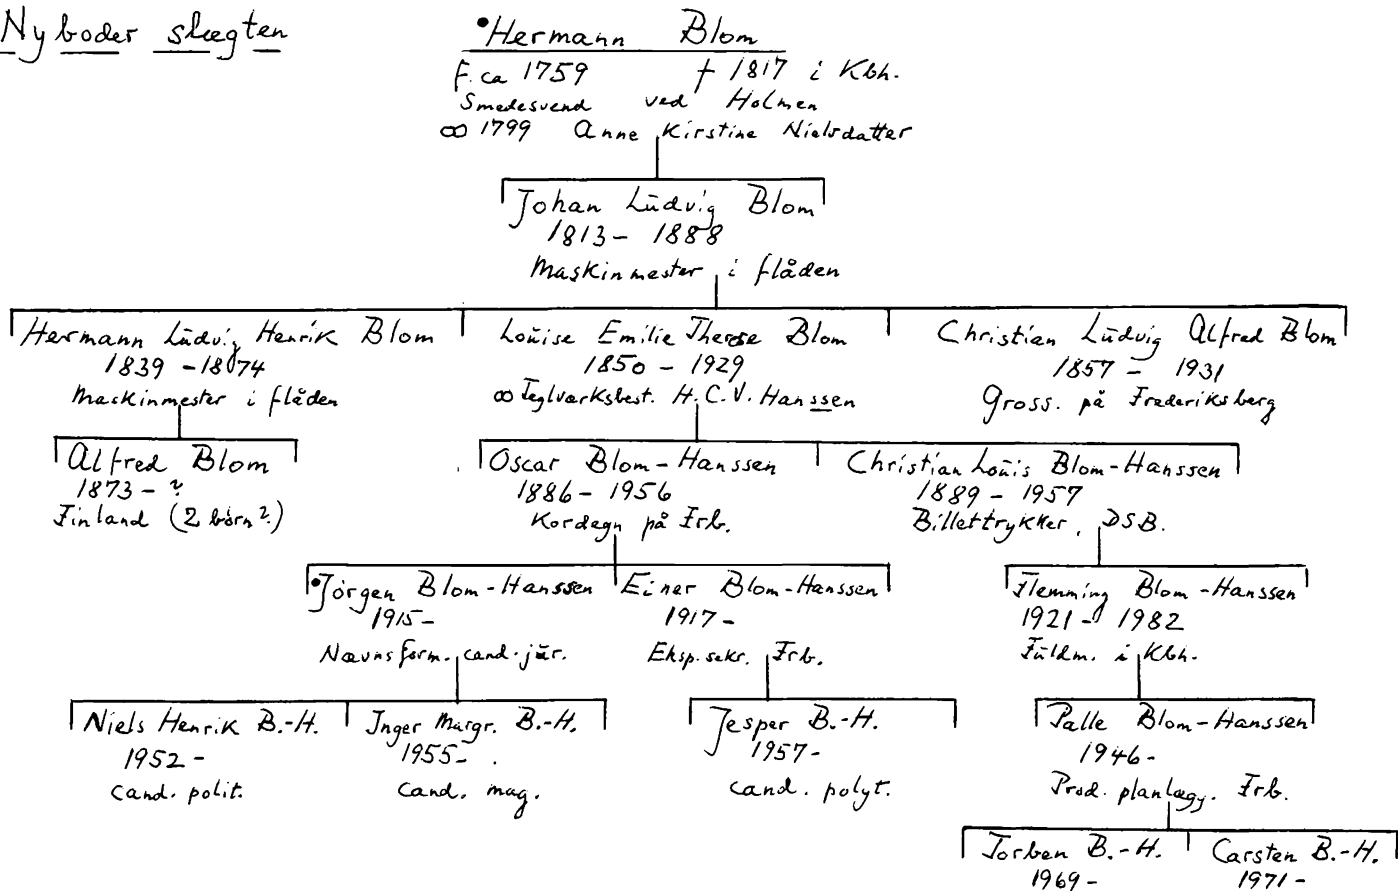 Nyboder slægten
Hermann Blom
f. ca 1759 † 1817 i Kbh.
Smedesvend ved Holmen
∞ 1799 Anne Kirstine Nielsdatter
Johan Ludvig Blom
1813 - 1888
Maskinmester i flåden
Hermann Ludvig Henrik Blom
1839 - 1874
Maskinmester i flåden
Louise Emilie Therese Blom
1850 - 1929
∞ Teglværksbest. H.C.V. Hanssen
Christian Ludvig Alfred Blom
1857 - 1931
Gross. på Frederiksberg
Alfred Blom
1873 - ?
Finland (2 børn?)
Oscar Blom-Hanssen
1886 - 1956
Kordegn på Frb.
Christian Louis Blom-Hanssen
1889 - 1957
Billettrykker, DSB.
Jörgen Blom-Hanssen
1915-
Nævnsform. cand. jur.
Einer Blom-Hanssen
1917-
Eksp. sekr. Frb.
Flemming Blom-Hanssen
1921 - 1982
Fuldm. i Kbh.
Niels Henrik B.-H.
1952-
cand. polit.
Inger Margr. B.-H.
1955-
cand. mag.
Jesper B.-H.
1957-
cand. polyt.
Palle Blom-Hanssen
1946-
Prod. planlægg. Frb.
Torben B.-H.
1969-
Carsten B.-H.
1971-